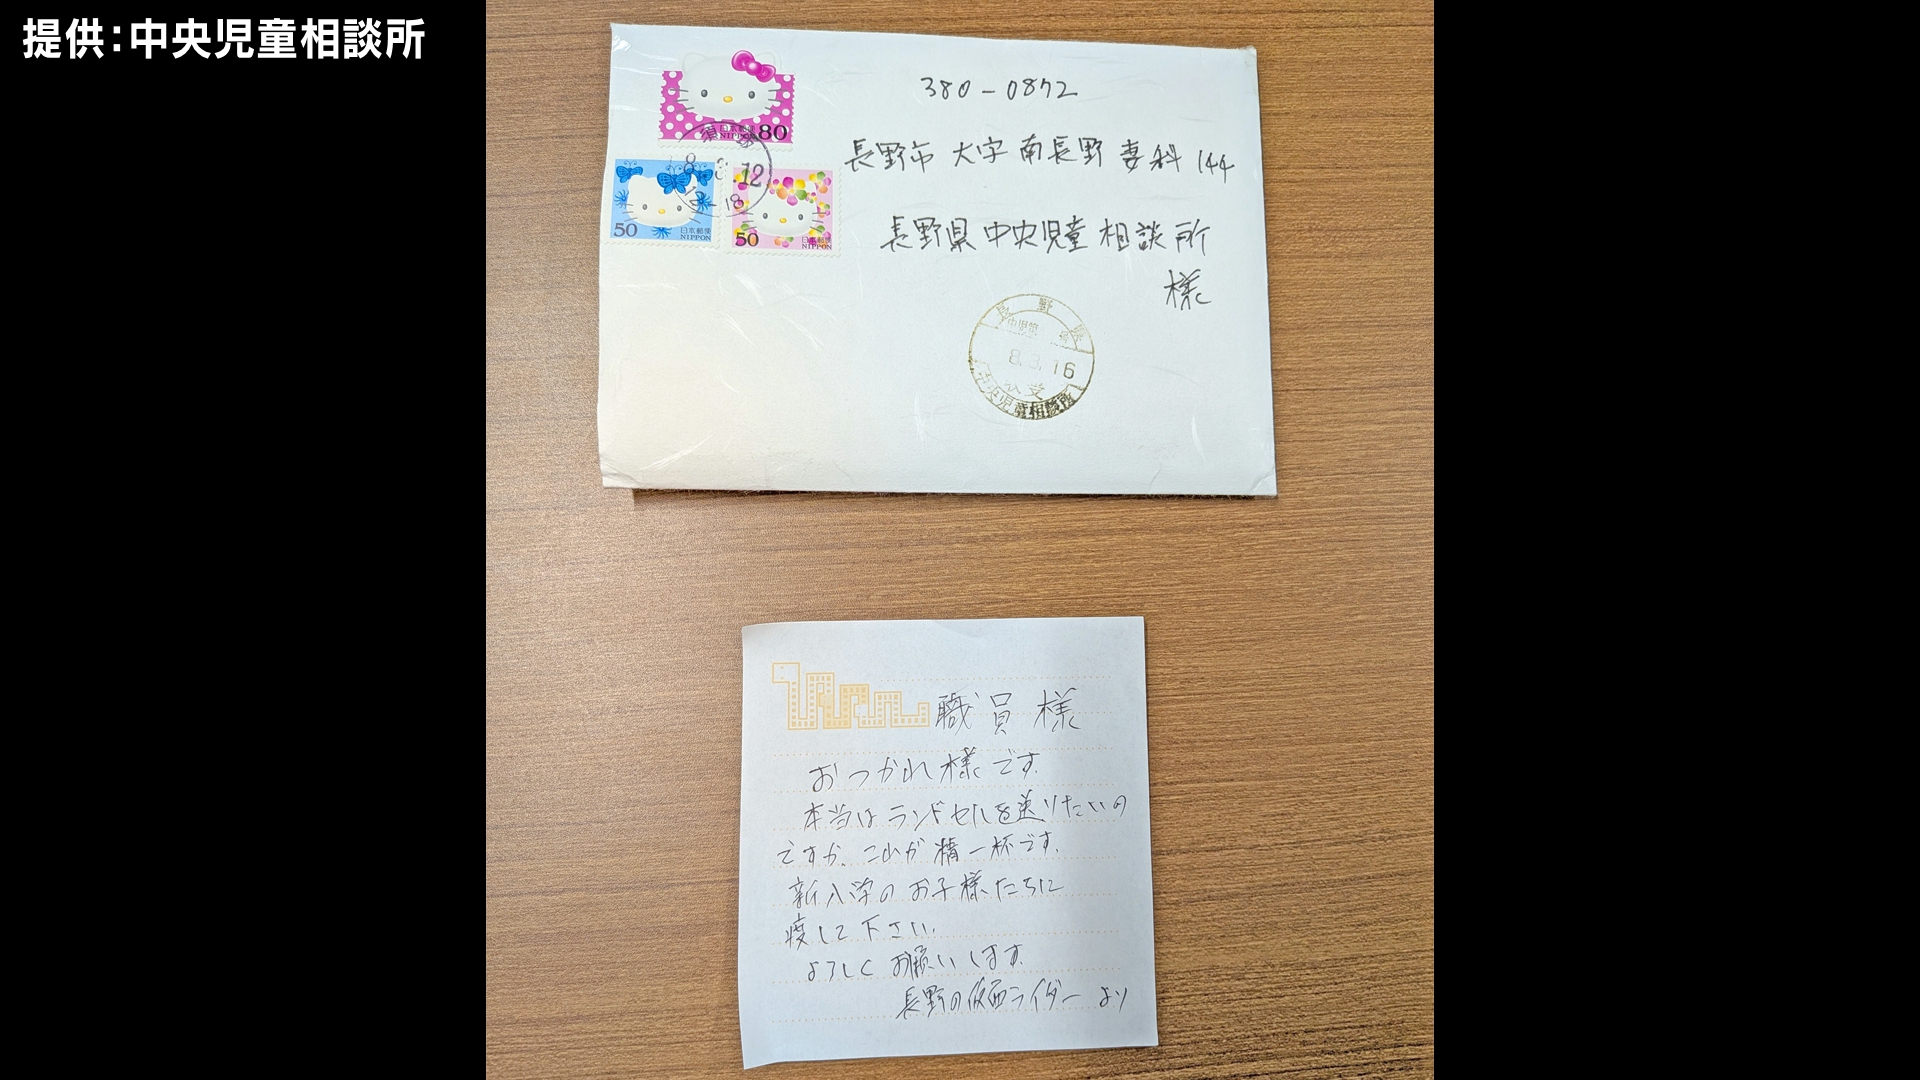 提供:中央児童相談所
380-0872
長野市 大字 南長野 妻科 144
長野県 中央児童 相談所
様
80
日本郵便
NIPPON
12
18
50
日本郵便
NIPPON
50
日本郵便
NIPPON
野
8.3.16
中央児童相談所
職員様
おつかれ様です.
本当はランドセルを送りたいの
ですが、これが精一杯です.
新入学のお子様たちに
渡して下さい.
よろしくお願いします.
長野の仮面ライダーより